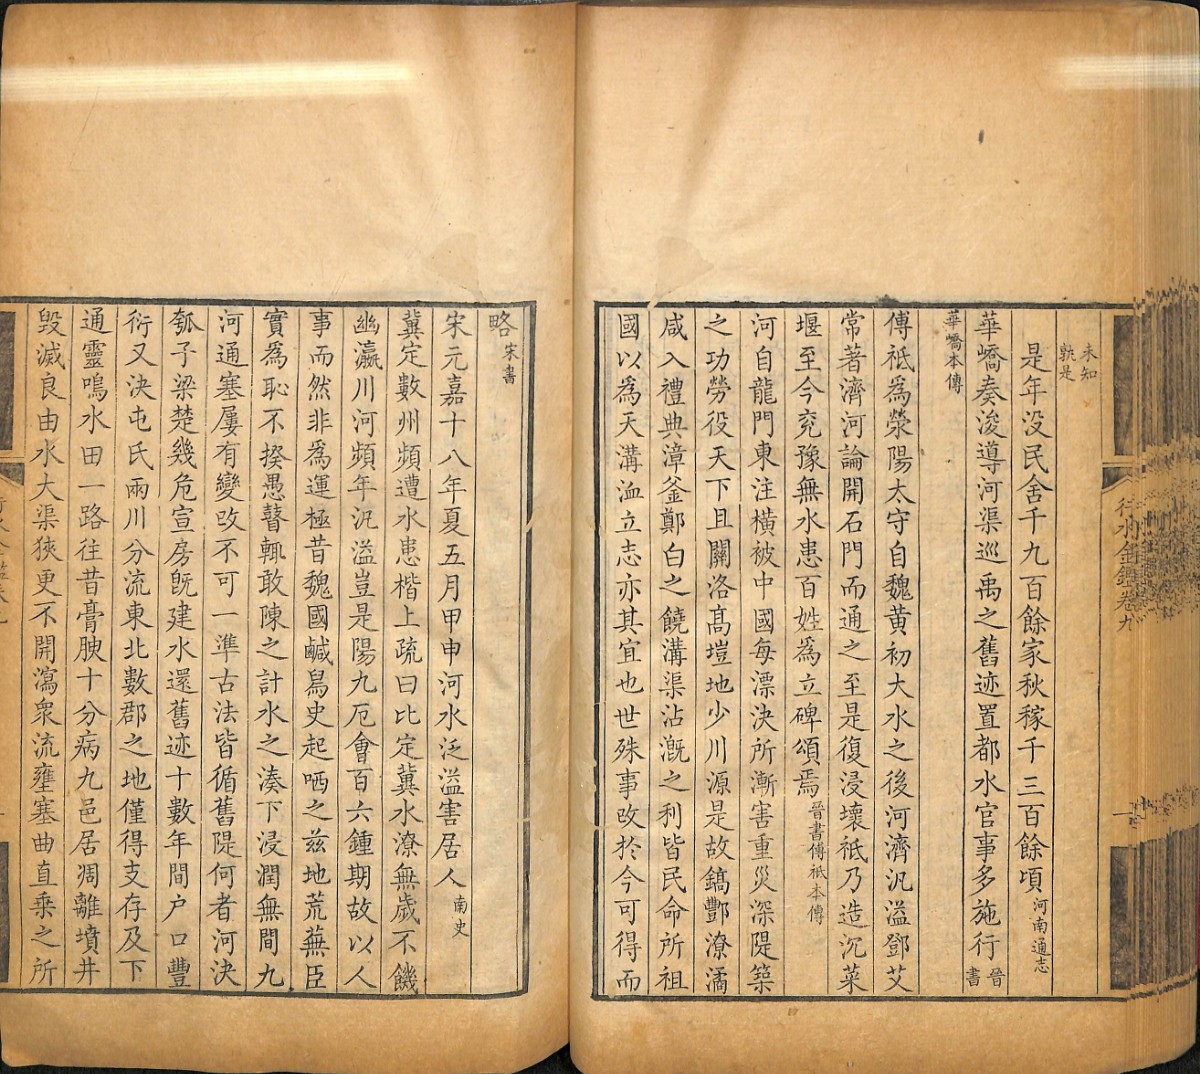 未知
孰是
是年没民舍千九百餘家秋稼千三百餘頃河南通志
華嶠奏浚導河渠巡禹之舊迹置都水官事多施行晉書
華嶠本傳
傅祗為滎陽太守自魏黄初大水之後河濟汎溢鄧艾
常著濟河論開石門而通之至是復浸壊祗乃造沉萊
堰至今兖豫無水患百姓為立碑頌焉晉書傅祗本傳
河自龍門東注橫被中國每漂決所漸害重災深隄築
之功勞役天下且關洛髙塏地少川源是故鎬酆潦潏
咸入禮典漳釜鄭白之饒溝渠沾溉之利皆民命所祖
國以為天溝洫立志亦其宜也世殊事改於今可得而
行水金鑑卷九
略宋書
宋元嘉十八年夏五月甲申河水泛溢害居人南史
冀定數州頻遭水患楷上疏曰比定冀水潦無歲不饑
幽瀛川河頻年汎溢豈是陽九厄會百六鍾期故以人
事而然非為運極昔魏國鹹舄史起哂之兹地荒蕪臣
實為恥不揆愚瞽輙敢陳之計水之湊下浸潤無間九
河通塞屢有變改不可一準古法皆循舊隄何者河決
瓠子梁楚幾危宣房既建水還舊迹十數年間户口豐
衍又決屯氏兩川分流東北數郡之地僅得支存及下
通靈鳴水田一路往昔膏腴十分病九邑居凋離墳井
毀滅良由水大渠狹更不開瀉衆流壅塞曲直乗之所